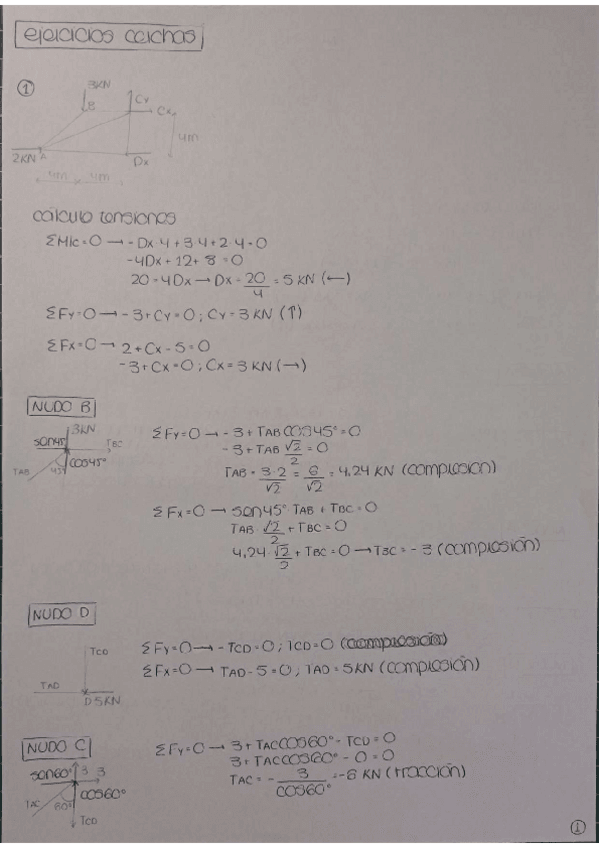 ejercicios cerchas
①
3KN
B
Cy
Cx
4m
2KN
A
Dx
4m 4m
cálculo tensiones
ΣM|c=0 → -Dx·4+3·4+2·4=0
-4Dx+12+8=0
20=4Dx → Dx=20/4=5 KN (←)
ΣFy=0 → -3+Cy=0; Cy=3 KN (↑)
ΣFx=0 → 2+Cx-5=0
-3+Cx=0; Cx=3 KN (→)
NUDO B
3KN
sen45°
TBC
TAB
45°
cos45°
ΣFy=0 → -3+TAB cos45°=0
-3+TAB √2/2=0
TAB=3·2/√2=6/√2=4,24 KN (compresión)
ΣFx=0 → sen45°·TAB+TBC=0
TAB·√2/2+TBC=0
4,24·√2/2+TBC=0 → TBC=-3 (compresión)
NUDO D
TCD
TAD
D 5KN
ΣFy=0 → -TCD=0; TCD=0 (compresión)
ΣFx=0 → TAD-5=0; TAD=5KN (compresión)
NUDO C
sen60°
3 3
cos60°
TAC
60°
TCD
ΣFy=0 → 3+TAC cos60°-TCD=0
3+TAC cos60°-0=0
TAC=-3/cos60°=-6 KN (tracción)
①